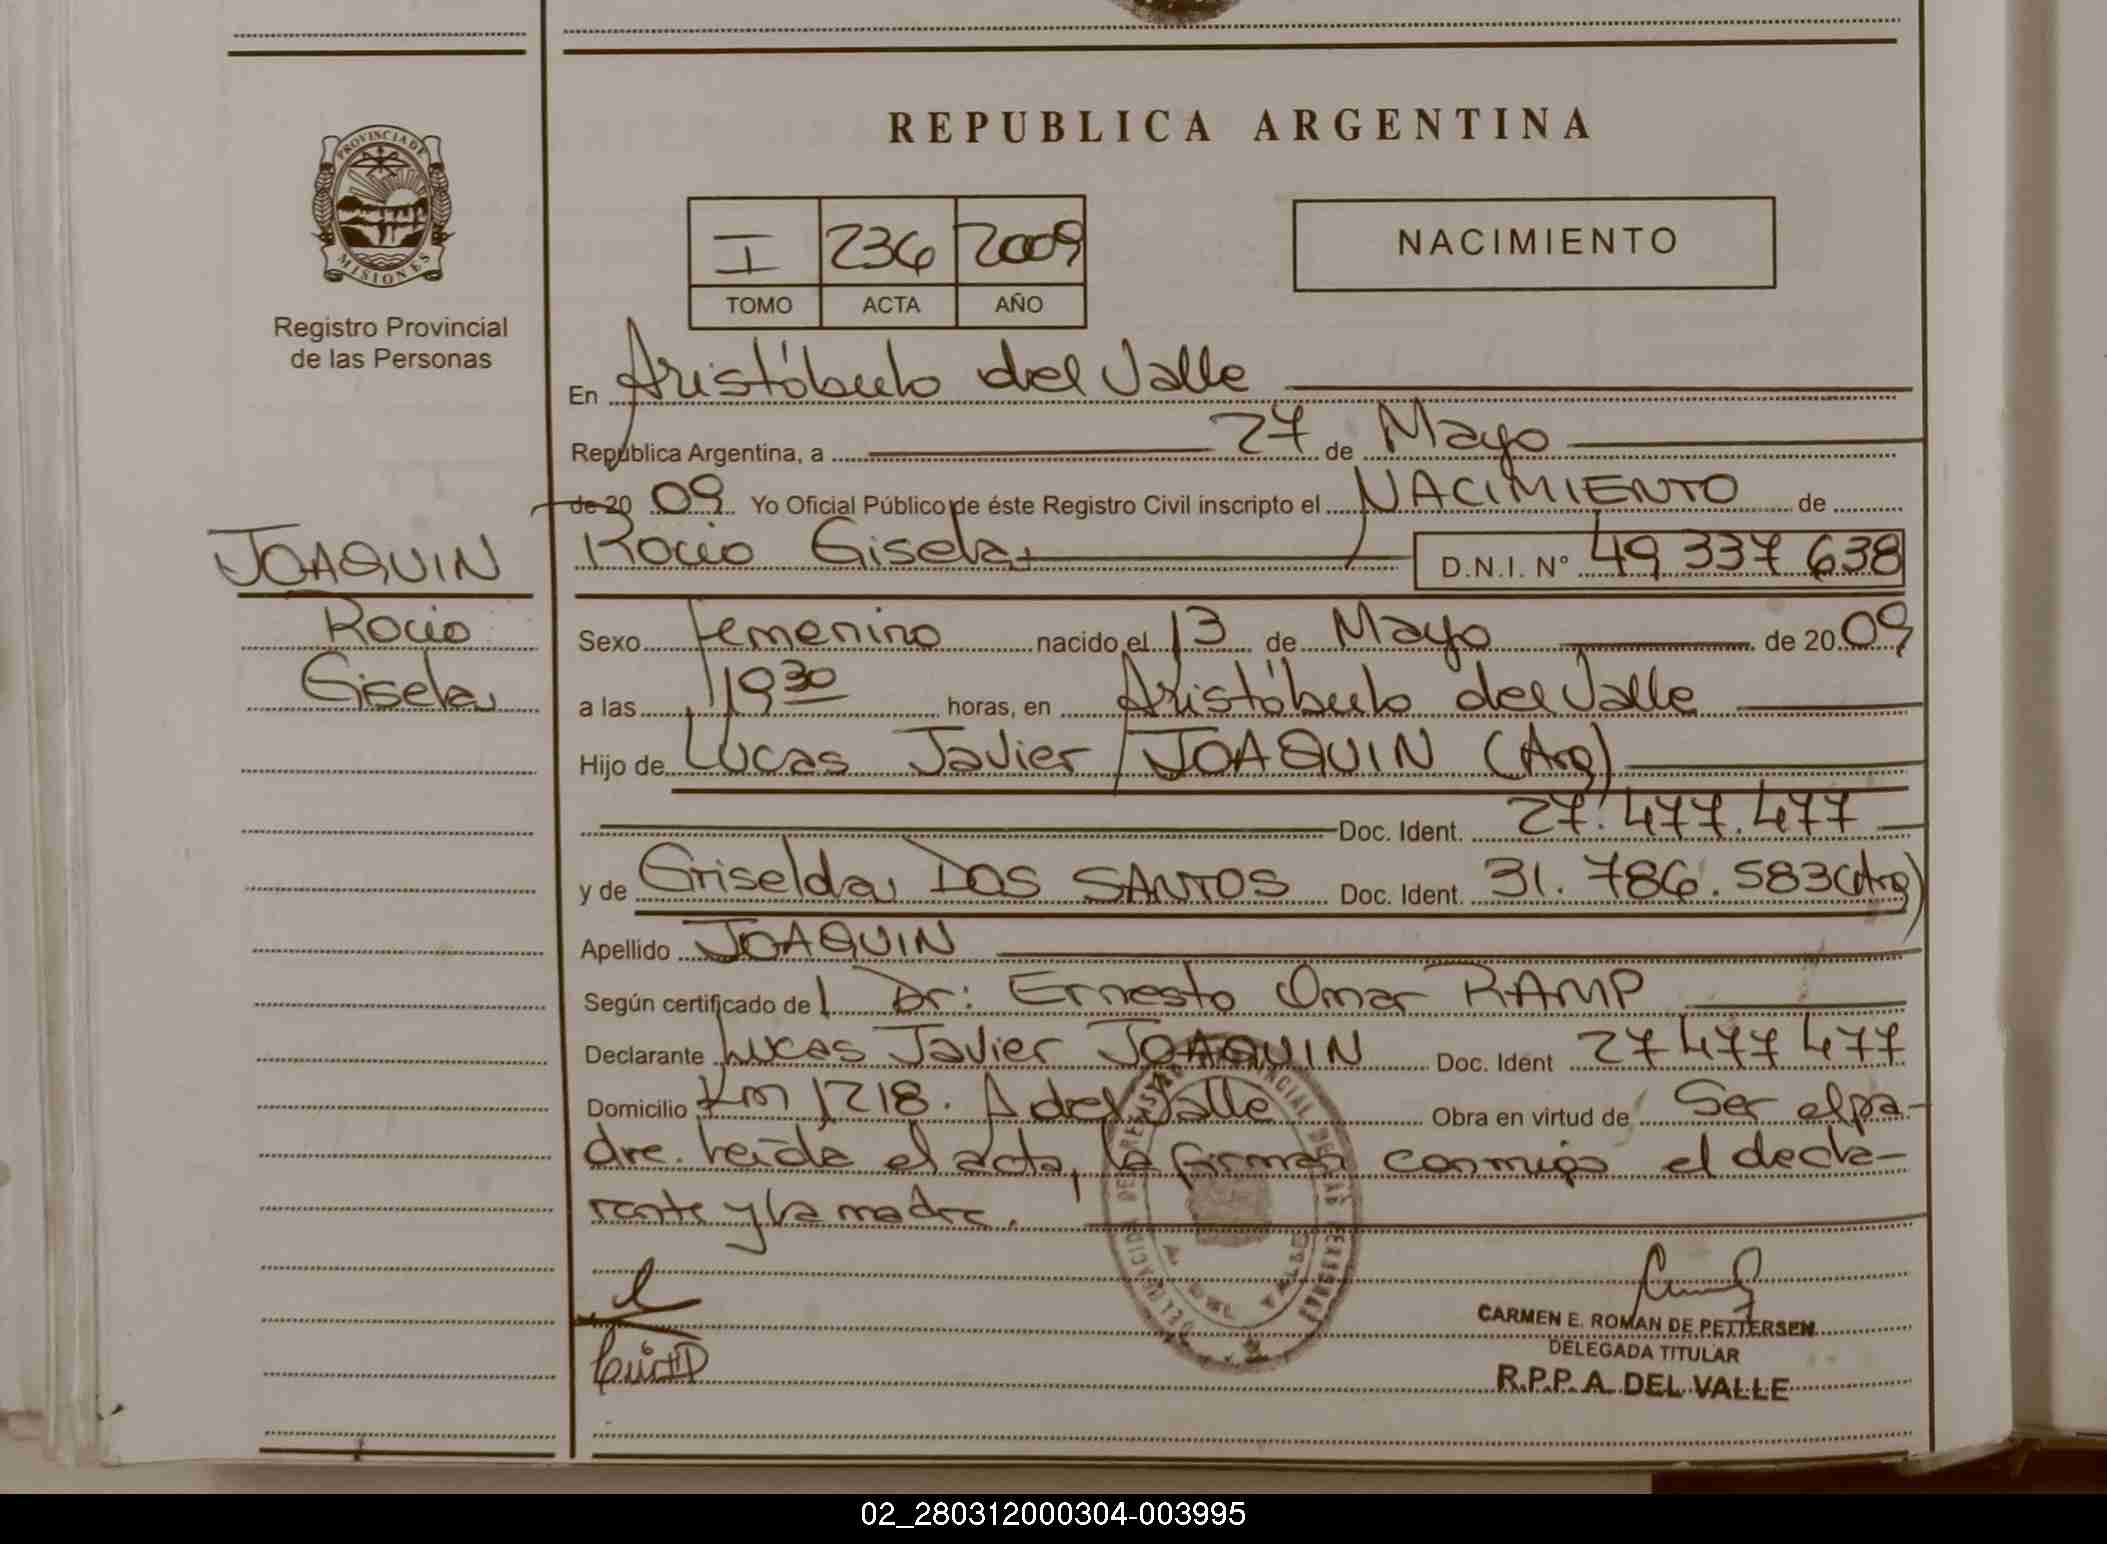 REPUBLICA ARGENTINA
PROVINCIA DE MISIONES
Registro Provincial
de las Personas
I 236 2009
TOMO ACTA AÑO
NACIMIENTO
En Aristóbulo del Valle
República Argentina, a 27 de Mayo
de 20 09 Yo Oficial Público de éste Registro Civil inscripto el NACIMIENTO de
Rocio Gisela D.N.I. N° 49 337 638
JOAQUIN
Rocio
Gisela
Sexo femenino nacido el 13 de Mayo de 20 09
a las 19 30 horas, en Aristóbulo del Valle
Hijo de Lucas Javier JOAQUIN (Arg)
Doc. Ident. 27.477.477
y de Griselda DOS SANTOS Doc. Ident. 31.786.583 (Arg)
Apellido JOAQUIN
Según certificado de Dr: Ernesto Omar RAMP
Declarante Lucas Javier JOAQUIN Doc. Ident 27 477 477
Domicilio Km 1218. A del Valle Obra en virtud de Ser el pa-
dre. Leída el acta, la firman conmigo el decla-
rante y la madre.
CARMEN E. ROMAN DE PETTERSEN
DELEGADA TITULAR
R.P.P. A. DEL VALLE
02_280312000304-003995